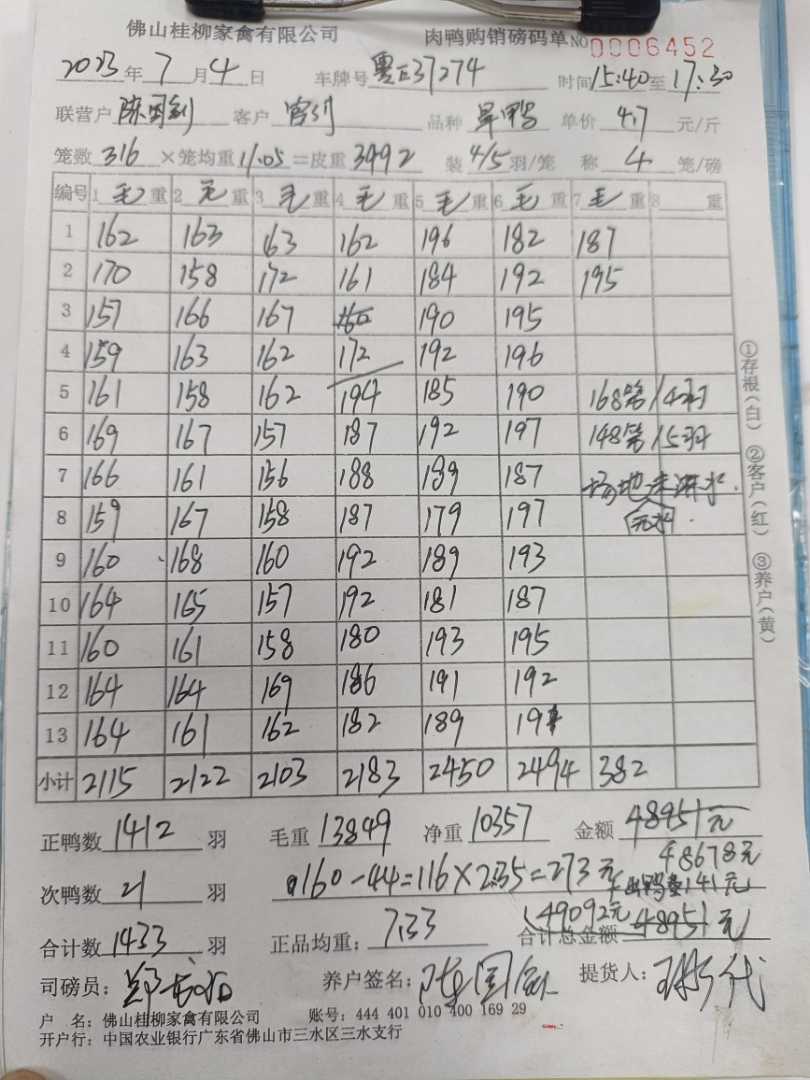 佛山桂柳家禽有限公司 肉鸭购销磅码单 NO 0006452
2023年7月4日 车牌号 粤E37274 时间15:40至17:30
联营户 陈国钊 客户 品种 单价 4.7 元/斤
笼数 316 ×笼均重 11.05 =皮重 3492 装 4/5 羽/笼 称 4 笼/磅
编号 1 毛 重 2 毛 重 3 毛 重 4 毛 重 5 毛 重 6 毛 重 7 毛 重 8 重
1 162 163 163 162 196 182 187
2 170 158 172 161 184 192 195
3 157 166 167 160 190 195
4 159 163 162 172 192 196
5 161 158 162 194 185 190 168笼/4羽
6 169 167 157 187 192 197 148笼/5羽
7 166 161 156 188 189 187 场地未淋水.
8 159 167 158 187 179 197 无水.
9 160 168 160 192 189 193
10 164 165 157 192 181 187
11 160 161 158 180 193 195
12 164 164 169 186 191 192
13 164 161 162 182 189 191
小计 2115 2122 2103 2183 2450 2494 382
正鸭数 1412 羽 毛重 13849 净重 10357 金额 48951元
48678元
次鸭数 21 羽 160-44=116×2.35=273元 141元
(49092元
合计数 1433 羽 正品均重: 7.33 合计总金额 48951元
司磅员: 养户签名: 陈国钊 提货人:
户 名: 佛山桂柳家禽有限公司 账号: 444 401 010 400 169 29
开户行: 中国农业银行广东省佛山市三水区三水支行
①存根(白) ②客户(红) ③养户(黄)